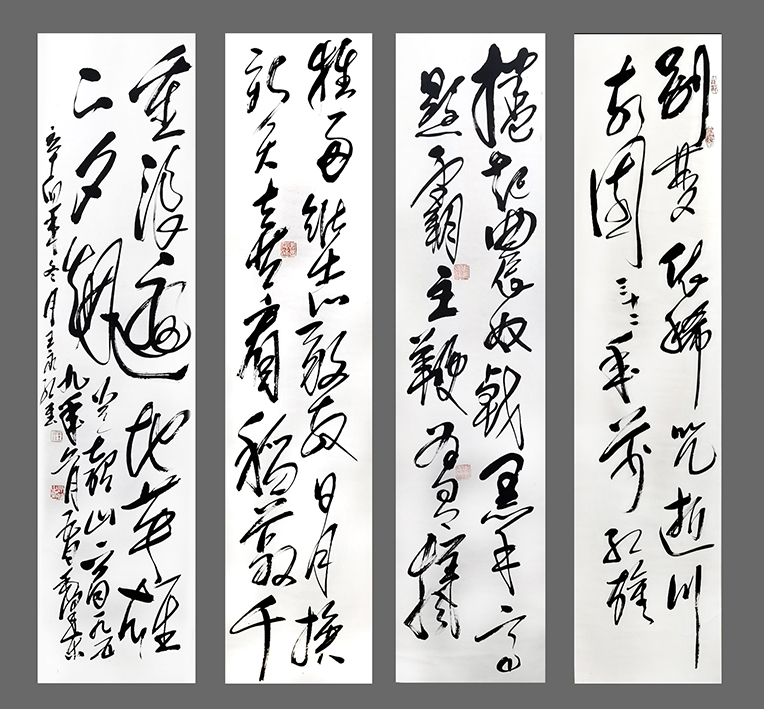 别梦依稀咒逝川
故园三十二年前红旗
捲起農奴戟黑手高
悬霸主鞭为有犧
牲多壮志敢教日月换
新天喜看稻菽千
重浪遍地英雄
下夕烟
到韶山一首一九五
九年六月毛泽东
冬月王永